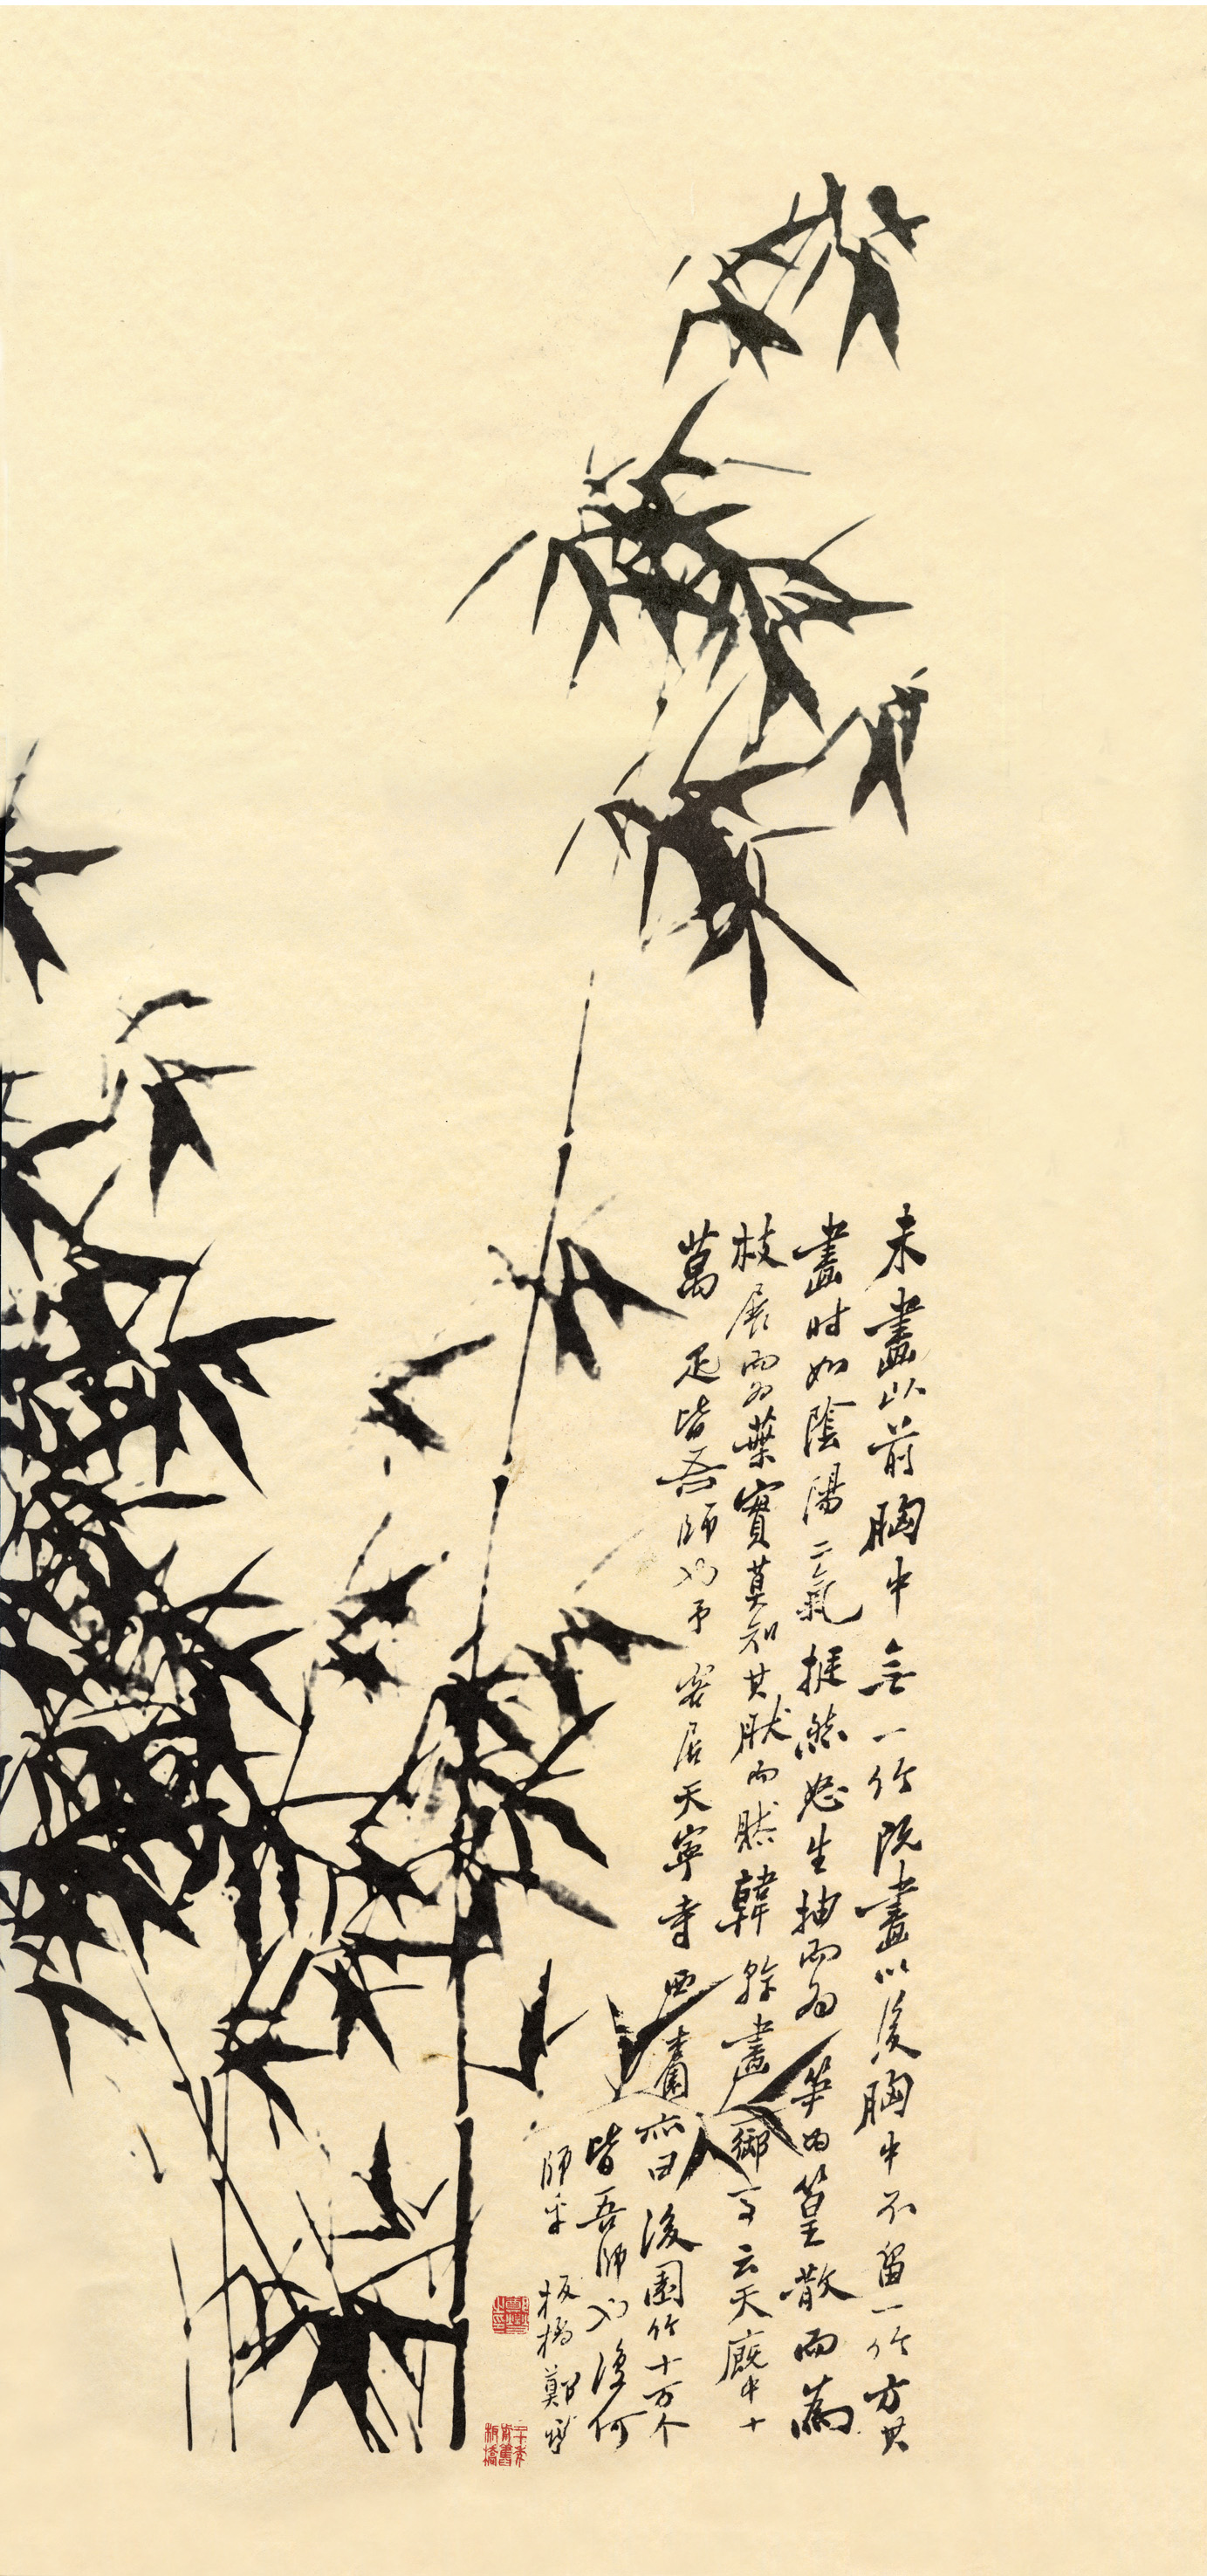 未畫以前胸中無一竹既畫以後胸中不留一竹方其
畫时如陰陽二氣挺然怒生抽而为笋为篁散而為
枝展而为葉實莫知其肰而然韓幹畫御馬云天廐中十
萬疋皆吾師也予客居天寧寺西
亦曰後園竹十万个
皆吾師也復何
師乎 板橋鄭燮